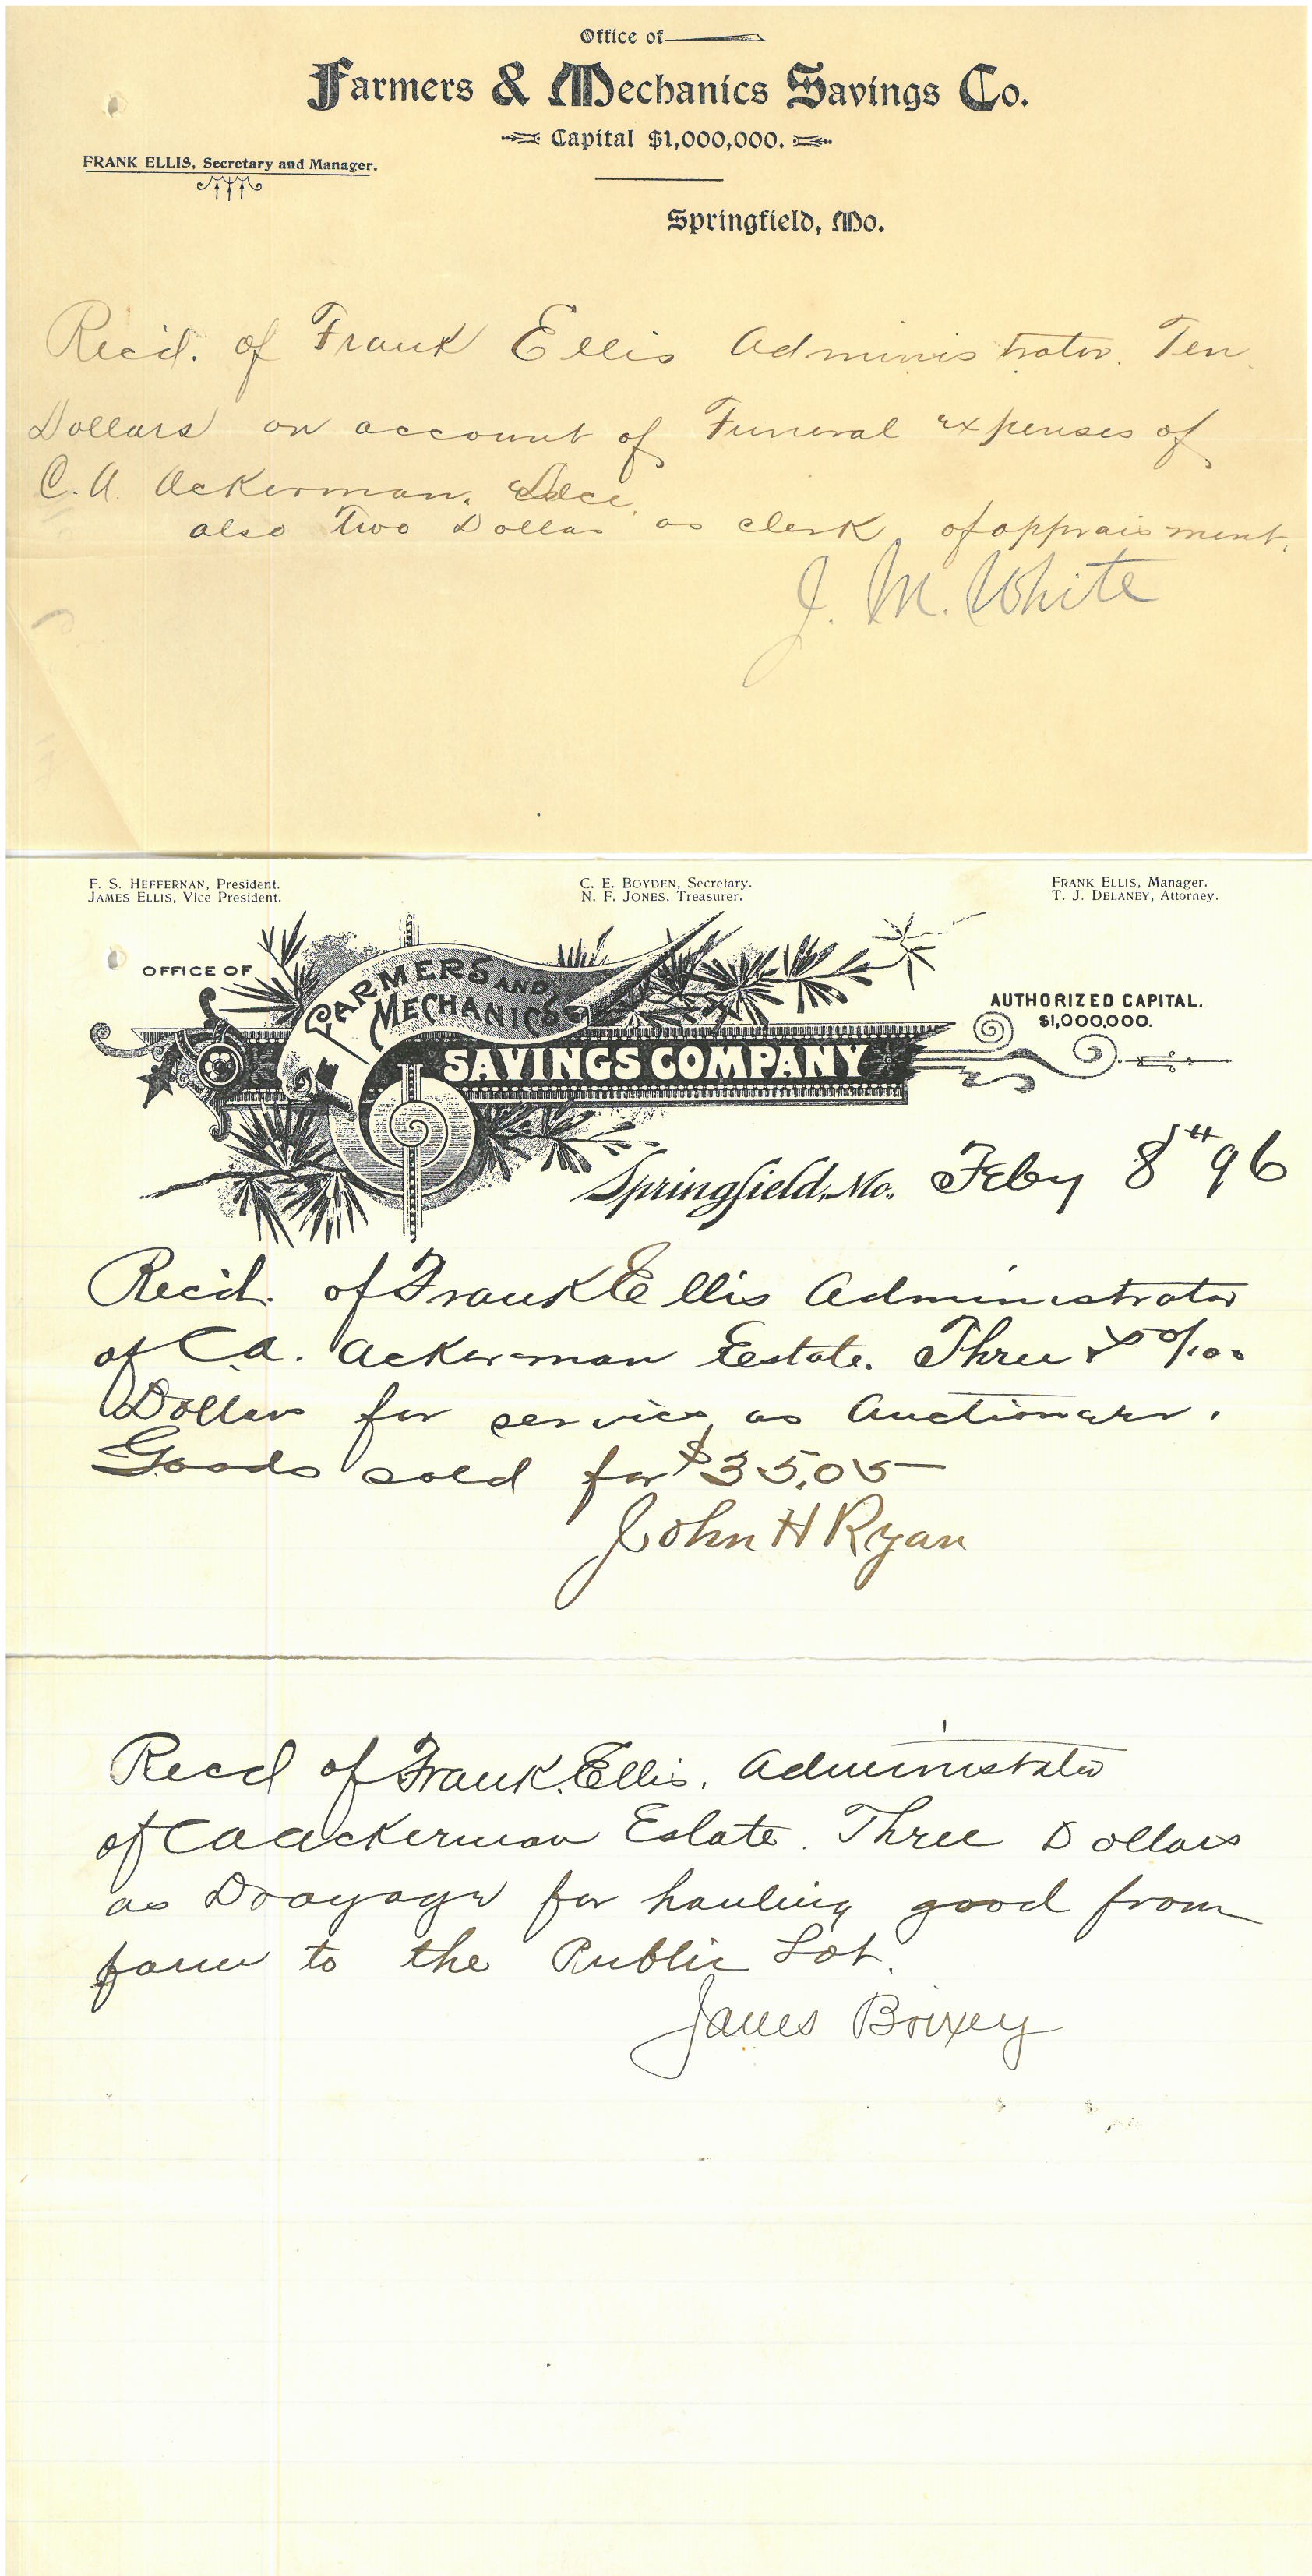 Office of
Farmers & Mechanics Savings Co.
Capital $1,000,000.
FRANK ELLIS, Secretary and Manager.
Springfield, Mo.
Rec'd. of Frank Ellis Administrator. Ten
Dollars on account of Funeral expenses of
C. A. Ackerman.
also Two Dollas as clerk of appraisment.
J. M. White
F. S. HEFFERNAN, President.
JAMES ELLIS, Vice President.
C. E. BOYDEN, Secretary.
N. F. JONES, Treasurer.
FRANK ELLIS, Manager.
T. J. DELANEY, Attorney.
OFFICE OF
FARMERS AND
MECHANICS
SAVINGS COMPANY
AUTHORIZED CAPITAL.
$1,000,000.
Springfield, Mo. Feby 8th 96
Rec'd. of Frank Ellis Administrator
of C.A. Ackerman Estate. Three &
Dollars for services as Auctioneer.
Goods sold for $35.05
John H Ryan
Recd of Frank Ellis. Administrator
of C A Ackerman Estate. Three Dollars
as Drayage for hauling good from
farm to the Public Lot.
James